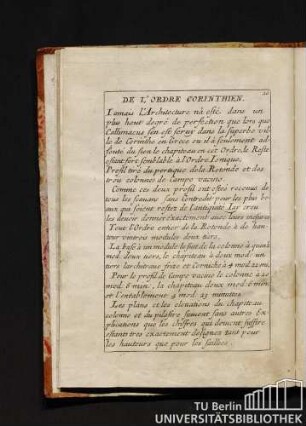 DE L'ORDRE CORINTHIEN.
Iamais L'Architecture n'a esté dans un
plus haut degré de perfection que lors que
Callimacus s'en est seruy dans la superbe vil
le de Corinthe en Grece ou il a seulement ad
jouté du sien le chapiteau en cet Ordre, le Reste
estant fort semblable à l'Ordre Ionique.
Profil tiré du portique de la Rotonde et des
trois colonnes de Campo vacino.
Comme ces deux profil ont estez reconus de
tous les sçauans sans Contredit pour les plus be
aux qui soient restez de l'antiquité
les deuoir donner exactement auec leurs mesures
Tout l'Ordre entier de la Rotonde à de hau
teur vint trois modules dont tiers.
La base à un module le fust de la colonne à quinze
mod. deux tiers, le chapiteau à deux mod. un
tiers larchitraue frise et Corniche à 4 mod.
Pour le profil de Campo vacino le colonne a
mod. 6 min. la chapiteau deux mod. 6 min
et l'entablement 4 mod. 23 minutes.
Les plans et les eleuations du chapiteau
colonne et du pilastre seruent sans autres Ex
plications que les chifres qui doiuent suffire
estants tres exactement designez tant pour
les hauteurs que pour les saillies.
TU Berlin
UNIVERSITÄTSBIBLIOTHEK